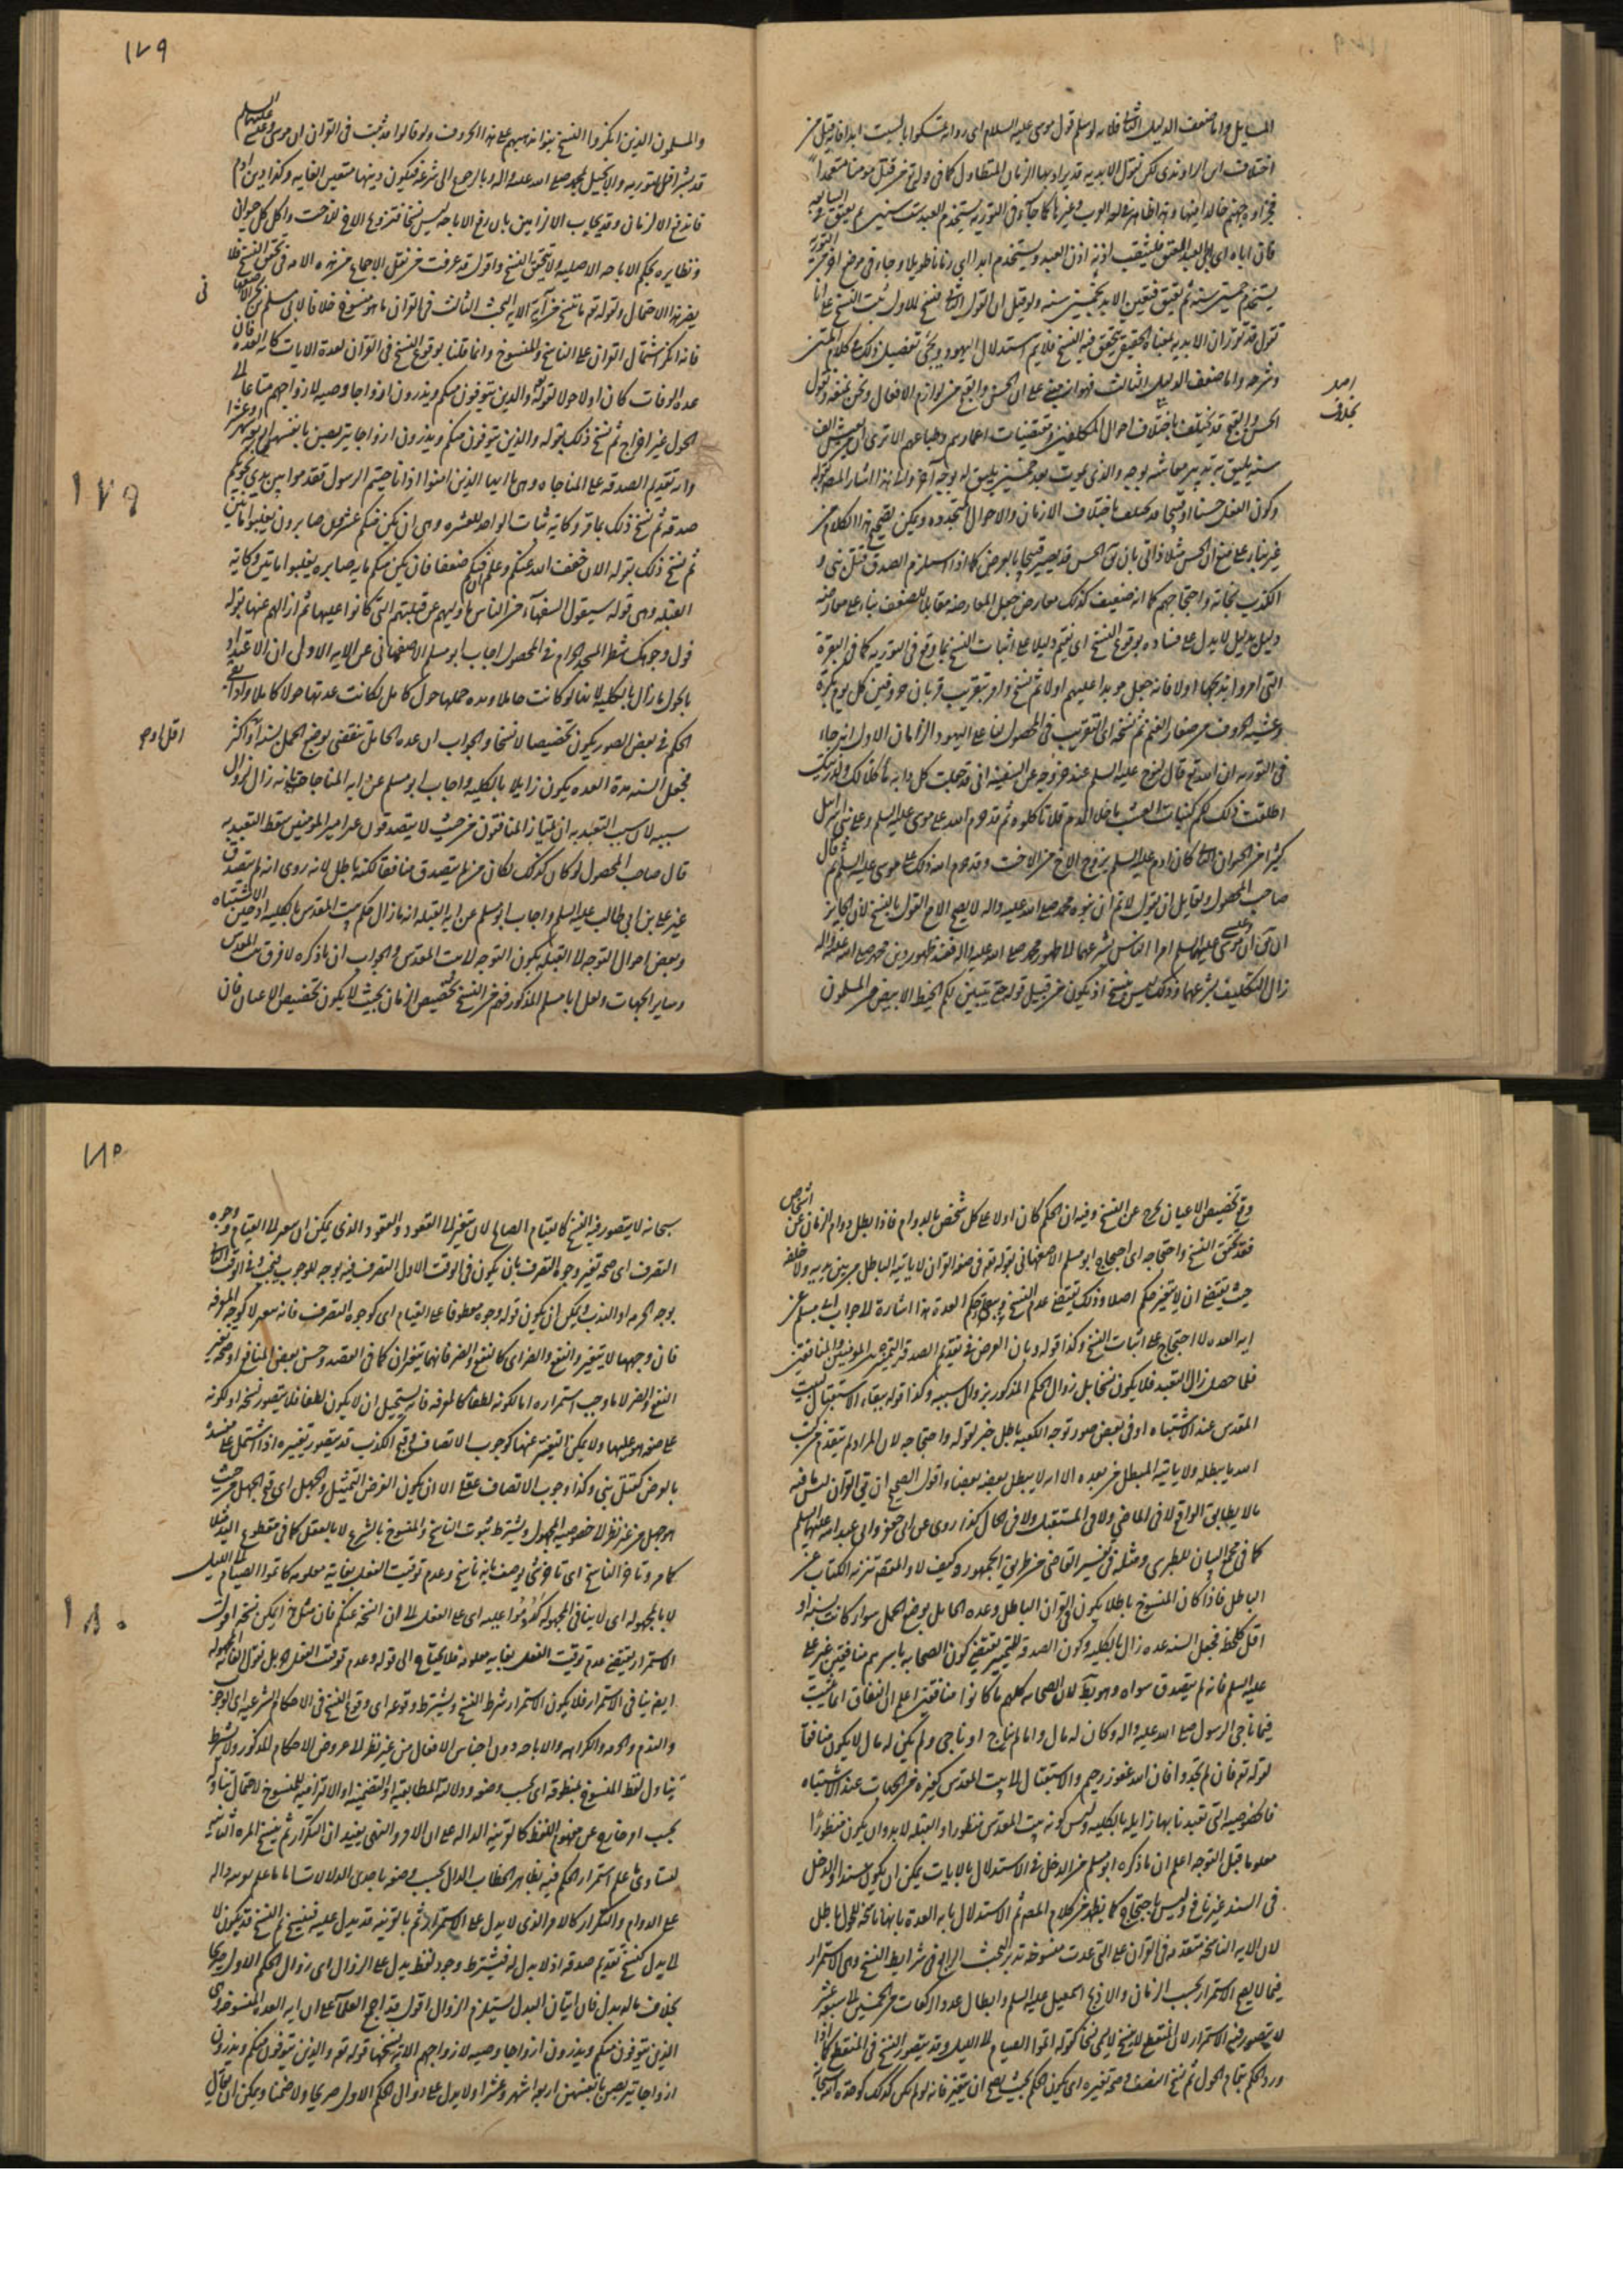 المسايل واما ضعف الدليل الثانى فلانه لو سلم قول موسى عليه السلام اى رواية تمسكوا بالسبت ابدا فانه قيل من
اختلاف ابن الراوندى لكن نقول الابدية قد يراد بها الزمان المتطاول كما فى قوله تع ومن قتل مومنا متعمدا
فجزاوه جهنم خالدا فيها وهذا ظاهر فى لغة العرب وغيرها كما جاء فى التورية يستخدم العبد ست سنين ثم يعتق فى السابعة
فان ابى العبد العتق فليثقب اذنه اذن العبد ويستخدم ابدا اى زمانا طويلا وجاء فى موضع اخر من التورية
يستخدم خمسين سنة ثم يعتق فتعين الابد بخمسين سنة ولو قيل ان القول الثانى نسخ للاول يثبت النسخ على انا
نقول قد تقرر ان الابدية بمعناه الحقيقى يتحقق فيه النسخ فلا يتم استدلال اليهود ويجئ تفصيل ذلك فى كلام المتن
وشرحه واما ضعف الدليل الثالث فهو انه مبنى على ان الحسن والقبح من لوازم الافعال ونحن نمنعه ونقول
الحسن والقبح قد يختلف باختلاف احوال المكلفين ومقتضيات اعمارهم وطباعهم الا ترى ان من يعيش الف
سنة يليق به تدبير معاشه بوجه والذى يموت بعد خمسين يليق له بوجه آخر والى هذا اشار المصنف بقوله
وكون الفعل حسنا او قبيحا قد يختلف باختلاف الازمان والاحوال المتجددة ويمكن تصحيح هذا الكلام من
غير بناء على منع ان الحسن مثلا ذاتى بان يق الحسن قد يصير قبيحا بالعرض كما اذا استلزم الصدق قتل نبى و
الكذب نجاته واحتجاجهم كما انه ضعيف كذلك معارض جعل المعارضة مقابلا للضعف بناء على معارضة
دليل بدليل لا يدل على فساده بوقوع النسخ اى نقيم دليلا على اثبات النسخ بما وقع فى التورية كما فى البقرة
التى امروا بذبحها اولا فانه جعل موبدا عليهم اولا ثم نسخ وامر بتقريب قربان خروفين كل يوم بكرة
وعشية الخروف من صغار الغنم ثم نسخه اى التقريب فى المحصول لنا على اليهود الزامان الاول انه جاء
فى التورية ان الله تع قال لنوح عليه السلم عند خروجه عن السفينة انى قد جعلت كل دابة ماكلا لك ولذريتك
اطلقت ذلك لكم كنبات العشب ما خلا الدم فلا تاكلوه ثم قد حرم الله على موسى عليه السلم وعلى بنى اسرائيل
كثيرا من الحيوان الثانى كان ادم عليه السلم يزوج الاخ من الاخت وقد حرم الله ذلك على موسى عليه السلم ثم قال
صاحب المحصول ولقايل ان يقول لا نم ان نبوة محمد صلى الله عليه واله لا يصح الا مع القول بالنسخ لان الجايز
ان يق ان موسى وعيسى عليهما السلم امرا الناس بشرعهما الى ظهور محمد صلى الله عليه واله فعند ظهور دين محمد صلى الله عليه واله
زال التكليف بشرعهما وذلك ليس بنسخ اذ يكون من قبيل قوله حتى يتبين لكم الخيط الابيض من المسلمون
اصد
بخلاف
١٧٩
والمسلمون الذين انكروا النسخ بنوا مذهبهم على هذا الحروف ولو قالوا قد ثبت فى القرآن ان موسى وعيسى عليهما السلم
قد بشر اقبل التورية والانجيل بمحمد صلى الله عليه واله وبالرجوع الى شرعه فيكون دينهما متعين الغاية وكذا دين ادم
فاندفع الالزمان وقد يجاب الالزامين بان رفع الاباحة ليس نسخا فتزويج الاخ للاخت واكل كل حيوان
ونظايره بحكم الاباحة الاصلية لا يتحقق النسخ واقول قد عرفت من نقل الاجماع من هذه الامة فى تحقق النسخ فلا
يضر هذا الاحتمال ولقوله تع ما ننسخ من آية الاية البحث الثالث فى القرآن ما هو منسوخ خلافا لابى مسلم بن بحر الاصفهانى
فانه انكر اشتمال القرآن على الناسخ والمنسوخ وانما قلنا بوقوع النسخ فى القرآن لعدة الايات كاية العدة فان
عدة الوفات كان اولا حولا لقوله تعالى والذين يتوفون منكم ويذرون ازواجا وصية لازواجهم متاعا الى
الحول غير اخراج ثم نسخ ذلك بقوله والذين يتوفون منكم ويذرون ازواجا يتربصن بانفسهن اربعة اشهر وعشرا
واية تقديم الصدقة على المناجاة وهى يا ايها الذين امنوا اذا ناجيتم الرسول فقدموا بين يدى نجويكم
صدقة ثم نسخ ذلك بما قر وكاية ثبات الواحد للعشرة وهى ان يكن منكم عشرون صابرون يغلبوا ماتين
ثم نسخ ذلك بقوله الان خفف الله عنكم وعلم ان فيكم ضعفا فان يكن منكم ماية صابرة يغلبوا ماتين وكاية
القبلة وهى قوله سيقول السفهاء من الناس ما وليهم عن قبلتهم التى كانوا عليها ثم ازالهم عنها بقوله
فول وجهك شطر المسجد الحرام فى المحصول اجاب ابو مسلم الاصفهانى عن الاية الاولى ان الاعتداد
بالحول ما زال بالكلية لانها لو كانت حاملا ومدة حملها حول كامل لكانت عدتها حولا كاملا واذا بقى
الحكم فى بعض الصور يكون تخصيصا لا نسخا والجواب ان عدة الحامل تنقضى بوضع الحمل لسنة او اكثر
فجعل السنة مدة العدة يكون زايلا بالكلية واجاب ابو مسلم عن اية المناجاة بانه زال لزوال
سببه لان سبب التعبد به ان يمتاز المنافقون من حيث لا يتصدقون عن امير المومنين سقط التعبد به
قال صاحب المحصول لو كان كذلك لكان من لم يتصدق منافقا لكنه باطل لانه روى انه لم يتصدق
غير على بن ابى طالب عليه السلم واجاب ابو مسلم عن اية القبلة انه ما زال حكم بيت المقدس بالكلية اذ حين الاشتباه
وبعض احوال التوجه الى القبلة يكون التوجه لا بيت المقدس والجواب ان ما ذكره لا فرق بيت المقدس
وساير الجهات ولعل ابا مسلم المذكور فهم من النسخ تخصيص الزمان بحيث لا يكون تخصيص الاعيان فان
فى
١٧٩
اقل او هو
ومع تخصيص الاعيان يخرج عن النسخ وفيه ان الحكم كان اولا على كل شخص بالدوام فاذا بطل دوام الزمان عن اشخاص
فقد تحقق النسخ واحتجاجه اى احتجاج ابو مسلم الاصفهانى بقوله تع فى صفة القرآن لا ياتيه الباطل من بين يديه ولا خلفه
حيث يقتضى ان لا يتغير حكم اصلا وذلك يقتضى عدم النسخ وببقاء حكم العدة هذا اشارة الى جواب ابى مسلم عن
اية العدة لا احتجاج على اثبات النسخ وكذا قوله وبان الغرض فى تقديم الصدقة التميز بين المومنين والمنافقين
فلما حصل زال التعبد فلا يكون نسخا بل زوال الحكم المذكور بزوال سببه وكذا قوله ببقاء الاستقبال لبيت
المقدس عند الاشتباه او فى بعض صور توجه الكعبة باطل خبر لقوله واحتجاجه لان المراد لم يتقدم من كتب
الله ما يبطله ولا ياتيه المبطل من بعده الا انه لا يبطل بعضه بعضا واقول الصحيح ان فى القرآن ليس فيه
ما لا يطابق الواقع لا فى الماضى ولا فى المستقبل ولا فى الحال كذا روى عن ابى جعفر وابى عبد الله عليهما السلم
كما فى مجمع البيان للطبرسى ومثله فى تفسير القاضى من طريق الجمهور وكيف لا والمقصد تنزيه الكتاب عن
الباطل فاذا كان المنسوخ باطلا يكون فى القرآن الباطل وعدة الحامل بوضع الحمل سواء كانت بسنة او
اقل كلحظة فجعل السنة عدة زال بالكلية وكون الصدقة للتمييز يقتضى كون الصحابة باسرهم منافقين غير على
عليه السلم فانه لم يتصدق سواه وهو بط لان الصحابة كلهم ما كانوا منافقين اعلم ان النفاق انما يثبت
فيما ناجى الرسول صلى الله عليه واله وكان له مال واما لم يناج او ناجى ولم يكن له مال لا يكون منافقا
لقوله تع فان لم تجدوا فان الله غفور رحيم والاستقبال الى بيت المقدس كغيره من الجهات عند الاشتباه
فالخصوصية التى تعبدنا بها زايلة بالكلية وليس كونه بيت المقدس منظورا والقبلة لا بد وان يكون منظورا
معلوما قبل التوجه اعلم ان ما ذكره ابو مسلم من الدخل فى الاستدلال بالايات يمكن ان يكون سندا والدخل
فى السند غير نافع وليس باحتجاج كما يظهر من كلام المصم ثم الاستدلال باية العدة بانها ناسخة للحول باطل
لان الاية الناسخة متقدمة فى القرآن على التى عدت منسوخة تدبر البحث الرابع فى شرايط النسخ وهى الاستمرار
فيما لا يصح الاستمرار بحسب الزمان والا ذبح اسمعيل عليه السلم وابطال عدد الركعات من الخمسين الى سبعة عشر
لا يتصور فيه الاستمرار لان المنقطع لا ينسخ لا يسمى نسخا كقوله اتموا الصيام الى الليل وقد يتصور النسخ فى المنقطع كما اذا
ورد الحكم بتمام الحول ثم نسخ النصف وصحة تغيره اى يكون الحكم بحيث يصح ان يتغير فانه لو لم يكن كذلك كوحدة الله سبحانه
١٨٠
سبحانه لا يتصور فيه النسخ كالقيام الصالح لان يتغير الى القعود والقعود الذى يمكن ان يتغير الى القيام ووجوه
التصرف اى صحة تغير وجوه التصرف بان يكون فى الوقت الاول التصرف فيه بوجه الوجوب فيجب وفى الوقت الثانى
بوجه الحرمة او الندب ويمكن ان يكون قوله وجوه معطوفا على القيام اى كوجوه التصرف فانه يتغير لا كوجه المعرفة
فان وجهها لا يتغير والنفع والضر اى كالنفع والضر فانهما يتغيران كما فى الفصد وحسن بعض المنافع او صحة تغير
النفع والضر لا ما وجب استمراره اما لكونه لطفا كالمعرفة فانه يستحيل ان لا يكون لطفا فلا يتصور نسخه او لكونه
على صفة هو عليها ولا يمكن التغير عنها كوجوب الانصاف وقبح الكذب قد يتصور تغييره اذا اشتمل على مفسدة
بالعرض كقتل نبى وكذا وجوب الانصاف عقلا الا ان يكون الغرض التمثيل والجهل اى قبح الجهل من حيث
هو جهل من غير نظر الى خصوصية المجهول ويشترط ثبوت الناسخ والمنسوخ بالشرع لا بالعقل كما فى مقطوع اليد مثلا
كما مر وتاخر الناسخ اى تاخر شئ يوصف بانه ناسخ وعدم توقيت الفعل بغاية معلومة كاتموا الصيام الى الليل
لا بالمجهولة اى لا ينافى المجهولة كدوموا عليه اى على الفعل الى ان انسخه عنكم فان مثل هذا يمكن نسخه اقول
الاستمرار يقتضى عدم توقيت الفعل بغاية معلومة فلا يحتاج الى قوله وعدم توقيت الفعل بل نقول الغاية المجهولة
ايضا ينافى الاستمرار فلا يكون الاستمرار شرط النسخ ويشترط وقوعه اى وقوع النسخ فى الاحكام الشرعية اى الوجوب
والندب والحرمة والكراهة والاباحة دون اجناس الافعال من غير نظر الى عروض الاحكام المذكور ولا يشترط
تناول لفظ المنسوخ بمنطوقه اى بحسب وضعه ودلالة المطابقية او التضمنية او الالتزامية للمنسوخ لاحتمال تناوله
بحسب امر خارج عن مفهوم اللفظ كالقرينة الدالة على ان الامر والنهى يفيد ان التكرار ثم ينسخ المرة الثانية
لتساوى ما علم استمرار الحكم فيه بظاهر الخطاب الدال بحسب وضعه باحدى الدلالات اما ما علم بوسط دال
على الدوام والتكرار كالامر الذى لا يدل على الاستمرار ثم بالقرينة قد يدل عليه فينسخ ثم النسخ قد يكون لا
الى بدل كنسخ تقديم صدقة اذ لا بدل له فيشترط وجود لفظ يدل على الزوال اى زوال الحكم الاول صريحا
بخلاف ما له بدل فان اتيان البدل يستلزم الزوال اقول قد اجمع العلماء على ان اية العدة المنسوخة وهى
الذين يتوفون منكم ويذرون ازواجا وصية لازواجهم الاية نسخها قوله تع والذين يتوفون منكم ويذرون
ازواجا يتربصن بانفسهن اربعة اشهر وعشرا ولا يدل على زوال الحكم الاول صريحا ولا ضمنا ويمكن ان يقال
١٨٠